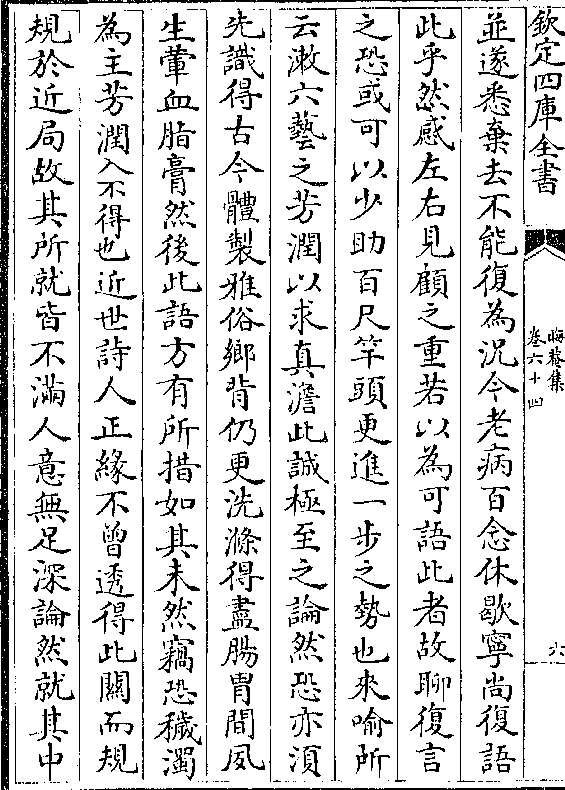 欽定四庫全書
晦菴集
卷六十四
六
並遂悉棄去不能復為況今老病百念休歇寧尚復語
此乎然感左右見顧之重若以為可語此者故聊復言
之恐或可以少助百尺竿頭更進一步之勢也來喻所
云漱六藝之芳潤以求真澹此誠極至之論然恐亦須
先識得古今體製雅俗鄉背仍更洗滌得盡腸胃間夙
生葷血脂膏然後此語方有所措如其未然竊恐穢濁
為主芳潤入不得也近世詩人正緣不曾透得此關而規
規於近局故其所就皆不滿人意無足深論然就其中